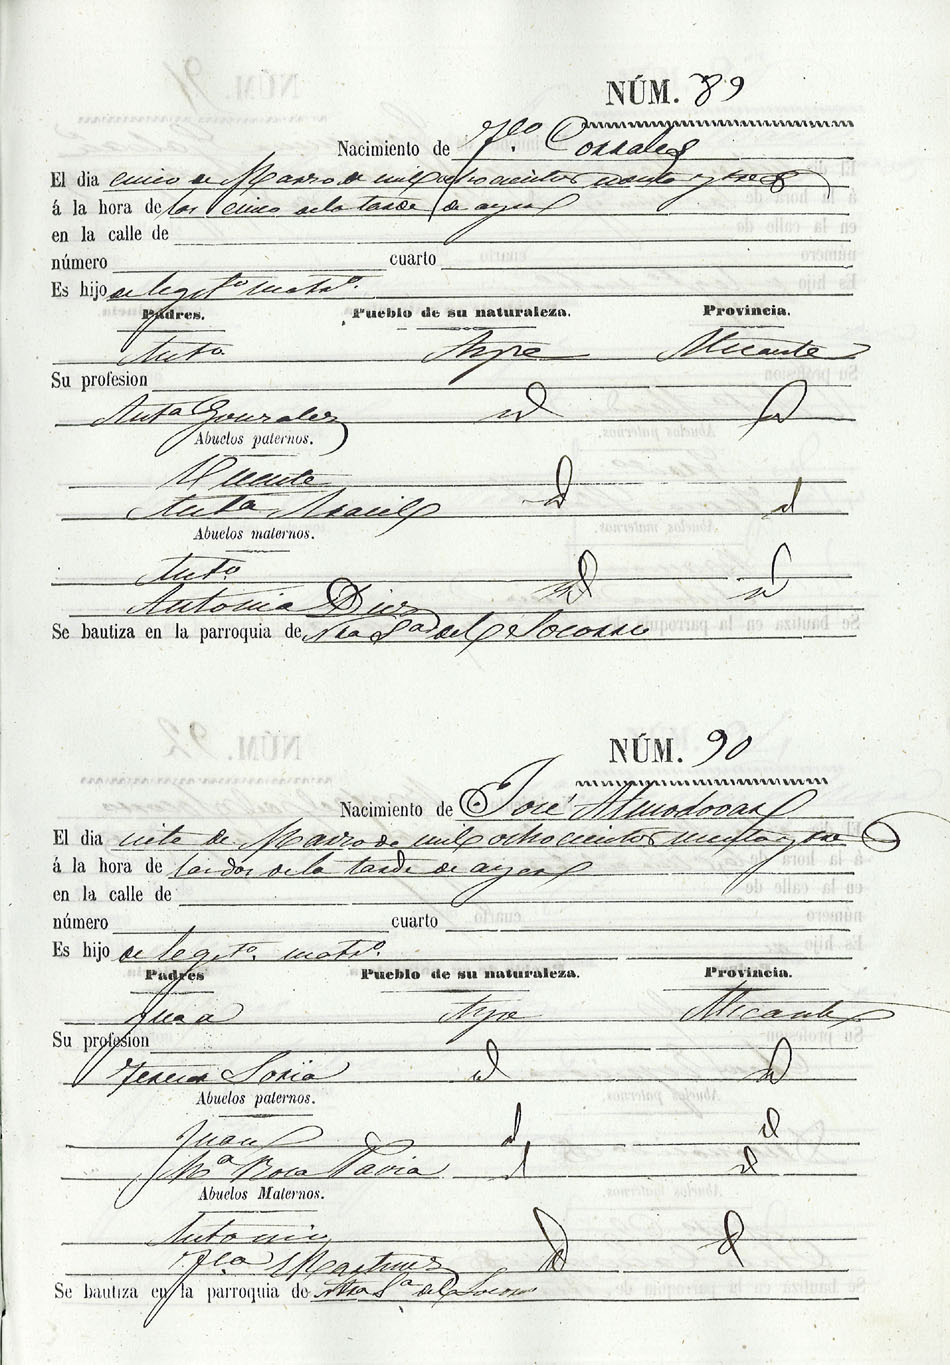 NÚM. 89
Nacimiento de Fco. Corrales
El dia cinco de Marzo de mil ochocientos
á la hora de las cinco de la tarde de ayer
en la calle de
número cuarto
Es hijo de legito. matro.
Padres. Pueblo de su naturaleza. Provincia.
Anto. Aspe Alicante
Su profesion
Anta Gonzalez id id
Abuelos paternos.
Vicente
Anta id id
Abuelos maternos.
Anto.
Antonia Diez id id
Se bautiza en la parroquia de Ntra Sa del Socorro
NÚM. 90
Nacimiento de José Almodovar
El dia siete de Marzo de mil ochocientos
á la hora de las dos de la tarde de ayer
en la calle de
número cuarto
Es hijo de legito. matro.
Padres Pueblo de su naturaleza. Provincia.
Juan Aspe Alicante
Su profesion
Teresa Soria id id
Abuelos paternos.
Juan id id
Ma Rosa Pavia id id
Abuelos Maternos.
Antonio
Fca Martinez id id
Se bautiza en la parroquia de Ntra Sa del Socorro